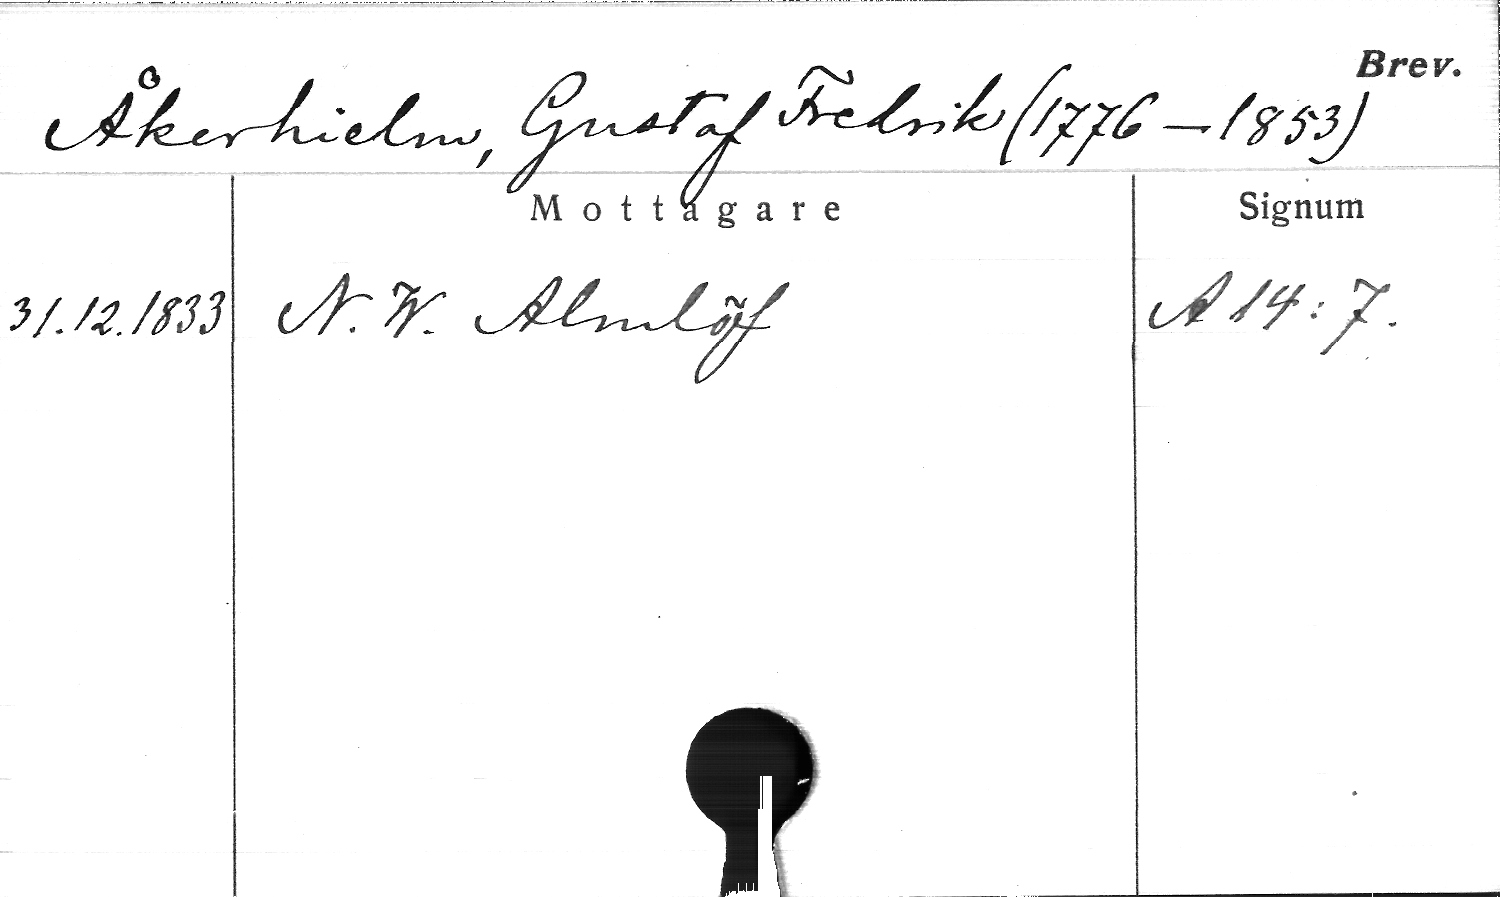 Brev.
Åkerhielm, Gustaf Fredrik (1776–1853)
Mottagare Signum
31.12.1833 N. W. Almlöf A 14:7.